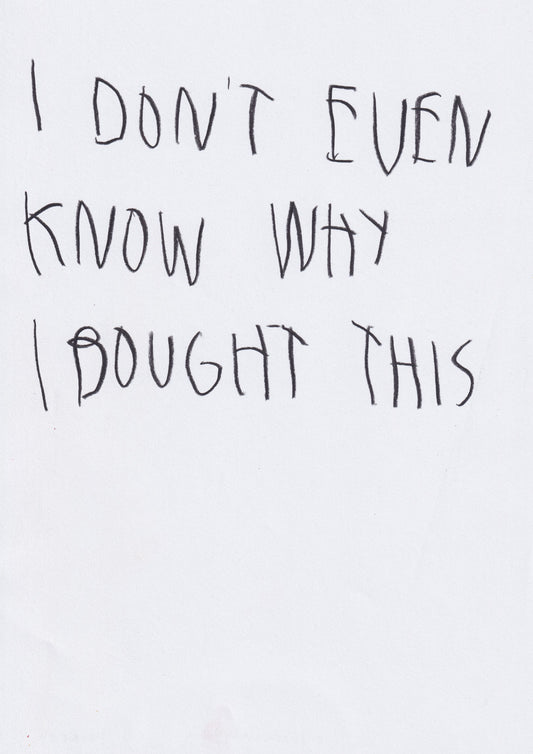 I DON'T EVEN
KNOW WHY
I BOUGHT THIS